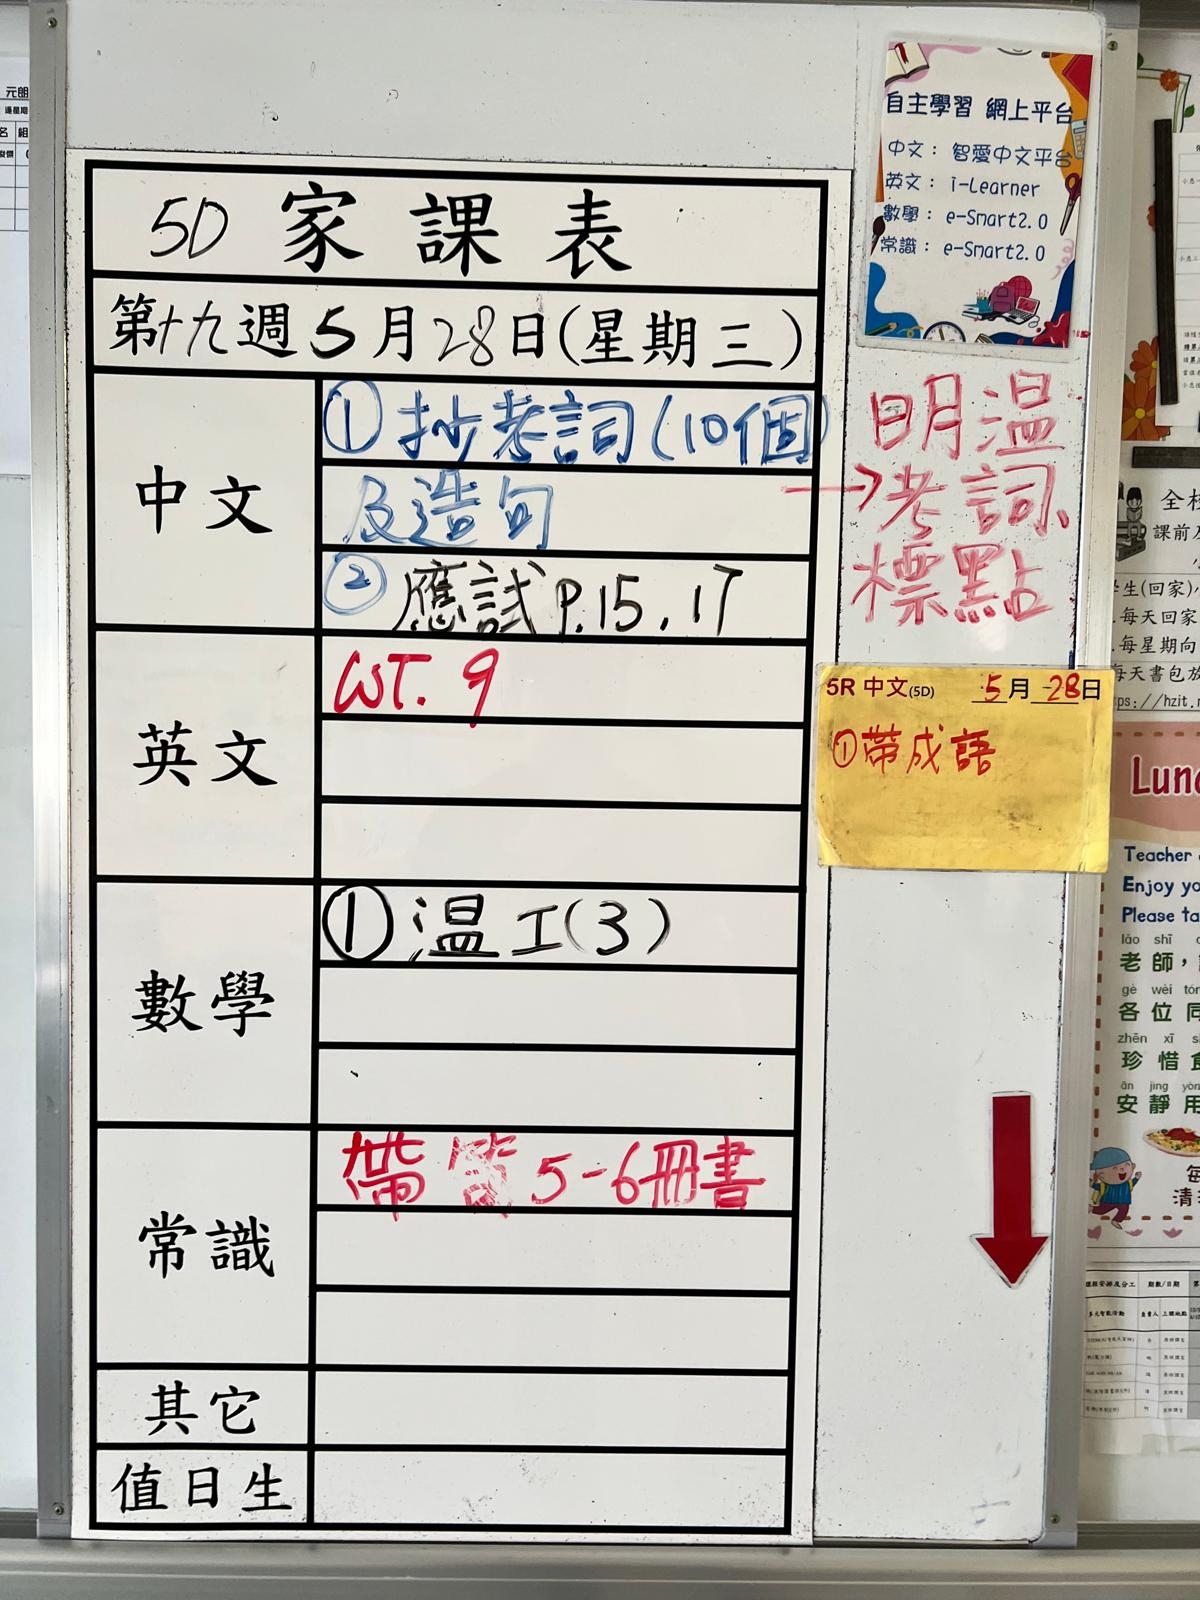 5D 家課表
第十九週 5月28日(星期三)
中文
① 抄考詞(10個)
及造句
② 應試 P.15, 17
英文
WT. 9
數學
① 温工(3)
常識
帶常5-6冊書
其它
值日生
自主學習 網上平台
中文: 智愛中文平台
英文: i-Learner
數學: e-Smart2.0
常識: e-Smart2.0
明温
→考詞、
標點
5R 中文(5D) 5月28日
①帶成語
元朗
全校
課前
學生(回家)
每天回家
每星期向
每天書包放
Lunc
Teacher
Enjoy yo
Please ta
lǎo shī
老師,
gè wèi tóng
各位同
zhēn xī
珍惜
ān jìng yòng
安靜用
每
清
期數/日期
多元智能活動
負責人
上課地點